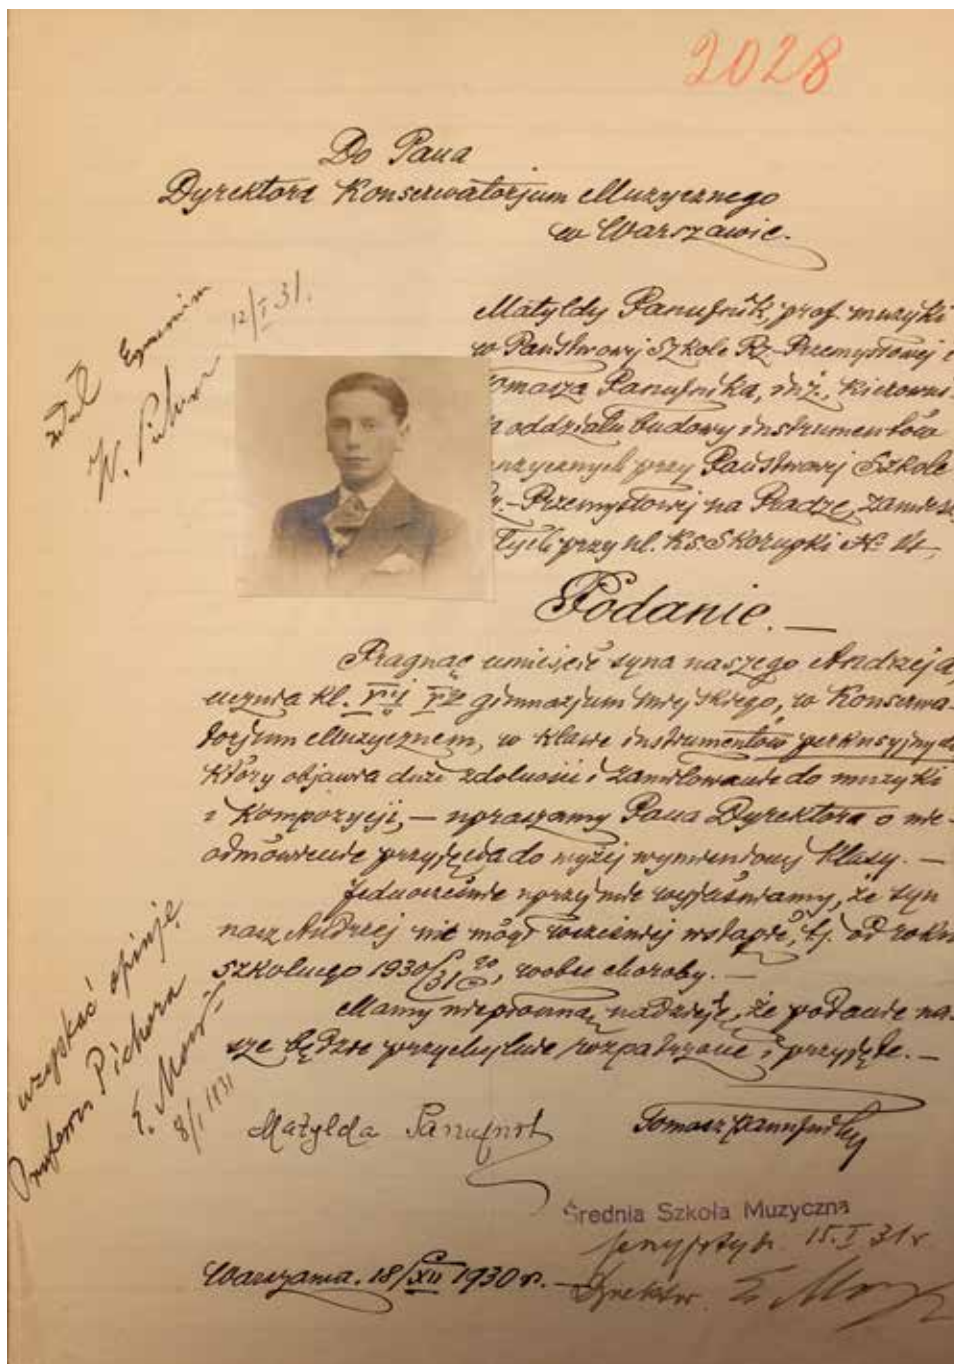 2028
Do Pana
Dyrektora Konserwatorjum Muzycznego
w Warszawie.
12/I 31.
Matyldy Panufnik, prof. muzyki
w Państwowej Szkole Rz-Przemysłowej i
Tomasza Panufnika, inż., kierowni-
ka oddziału budowy instrumentów
muzycznych przy Państwowej Szkole
Rz.-Przemysłowej na Pradze, zamiesz
łych przy ul. Ks. Skorupki №
Podanie.—
Pragnąc umieścić syna naszego Andrzeja,
ucznia kl. gimnazjum miejskiego, w Konserwa-
torjum Muzycznem, w klasie instrumentów perkusyjnych
który objawia duże zdolności i zamiłowanie do muzyki
i kompozycji, — upraszamy Pana Dyrektora o nie-
odmówienie przyjęcia do wyżej wymienionej klasy. —
Jednocześnie uprzejmie wyjaśniamy, że syn
nasz Andrzej nie mógł wcześniej wstąpić, t.j. od roku
szkolnego 1930/31 go, wobec choroby. —
Mamy niepłonną nadzieję, że podanie na-
sze będzie przychylnie rozpatrzone i przyjęte. —
uzyskać opinję
Profesora Pichora
8/I 1931
Matylda Panufnik
Tomasz Panufnik
Średnia Szkoła Muzyczna
15.I 31 r.
Warszawa. 18/XII 1930 r. —
Dyrektor